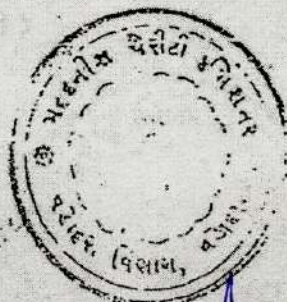 મદદનીશ ચેરીટી કમિશનર
વડોદરા વિભાગ, વડોદરા.